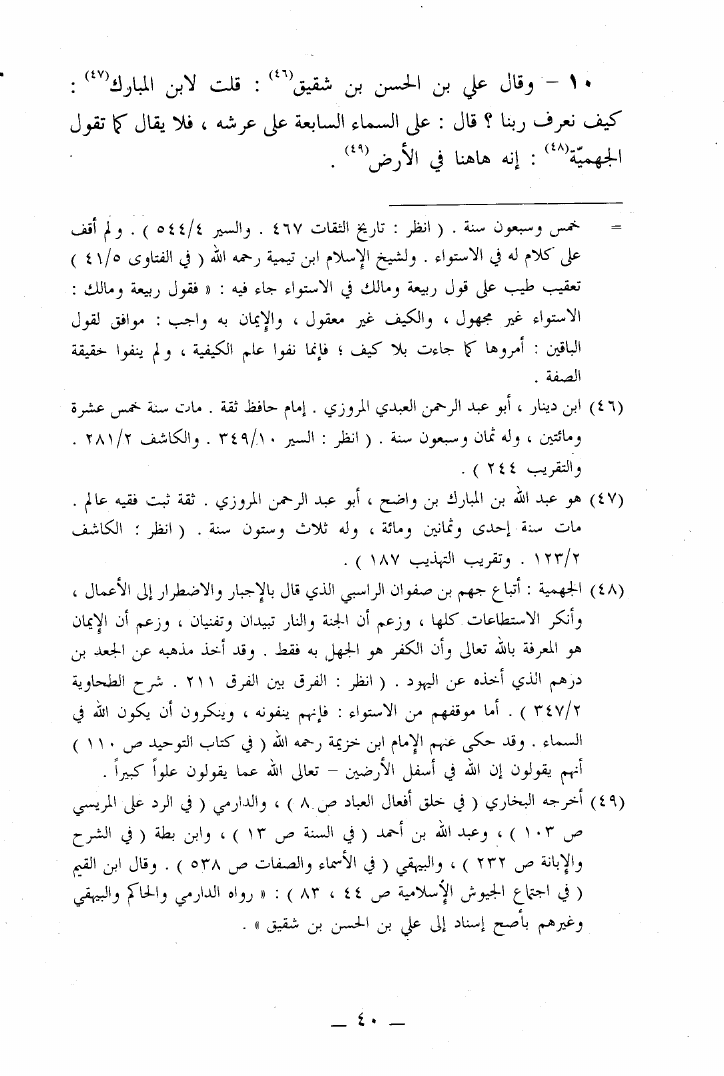 ١٠ – وقال علي بن الحسن بن شقيق(٤٦) : قلت لابن المبارك(٤٧) :
كيف نعرف ربنا ؟ قال : على السماء السابعة على عرشه ، فلا يقال كما تقول
الجهميّة(٤٨) : إنه هاهنا في الأرض(٤٩) .
= خمس وسبعون سنة . ( انظر : تاريخ الثقات ٤٦٧ . والسير ٥٤٤/٤ ) . ولم أقف
على كلام له في الاستواء . ولشيخ الإسلام ابن تيمية رحمه الله ( في الفتاوى ٤١/٥ )
تعقيب طيب على قول ربيعة ومالك في الاستواء جاء فيه : « فقول ربيعة ومالك :
الاستواء غير مجهول ، والكيف غير معقول ، والإيمان به واجب : موافق لقول
الباقين : أمروها كما جاءت بلا كيف ؛ فإنما نفوا علم الكيفية ، ولم ينفوا حقيقة
الصفة .
(٤٦) ابن دينار ، أبو عبد الرحمن العبدي المروزي . إمام حافظ ثقة . مات سنة خمس عشرة
ومائتين ، وله ثمان وسبعون سنة . ( انظر : السير ٣٤٩/١٠ . والكاشف ٢٨١/٢ .
والتقريب ٢٤٤ ) .
(٤٧) هو عبد الله بن المبارك بن واضح ، أبو عبد الرحمن المروزي . ثقة ثبت فقيه عالم .
مات سنة إحدى وثمانين ومائة ، وله ثلاث وستون سنة . ( انظر : الكاشف
١٢٣/٢ . وتقريب التهذيب ١٨٧ ) .
(٤٨) الجهمية : أتباع جهم بن صفوان الراسبي الذي قال بالإجبار والاضطرار إلى الأعمال ،
وأنكر الاستطاعات كلها ، وزعم أن الجنة والنار تبيدان وتفنيان ، وزعم أن الإيمان
هو المعرفة بالله تعالى وأن الكفر هو الجهل به فقط . وقد أخذ مذهبه عن الجعد بن
درهم الذي أخذه عن اليهود . ( انظر : الفرق بين الفرق ٢١١ . شرح الطحاوية
٣٤٧/٢ ) . أما موقفهم من الاستواء : فإنهم ينفونه ، وينكرون أن يكون الله في
السماء . وقد حكى عنهم الإمام ابن خزيمة رحمه الله ( في كتاب التوحيد ص ١١٠ )
أنهم يقولون إن الله في أسفل الأرضين – تعالى الله عما يقولون علواً كبيراً .
(٤٩) أخرجه البخاري ( في خلق أفعال العباد ص ٨ ) ، والدارمي ( في الرد على المريسي
ص ١٠٣ ) ، وعبد الله بن أحمد ( في السنة ص ١٣ ) ، وابن بطة ( في الشرح
والإبانة ص ٢٣٢ ) ، والبيهقي ( في الأسماء والصفات ص ٥٣٨ ) . وقال ابن القيم
( في اجتماع الجيوش الإسلامية ص ٤٤ ، ٨٣ ) : « رواه الدارمي والحاكم والبيهقي
وغيرهم بأصح إسناد إلى علي بن الحسن بن شقيق » .
– ٤٠ –